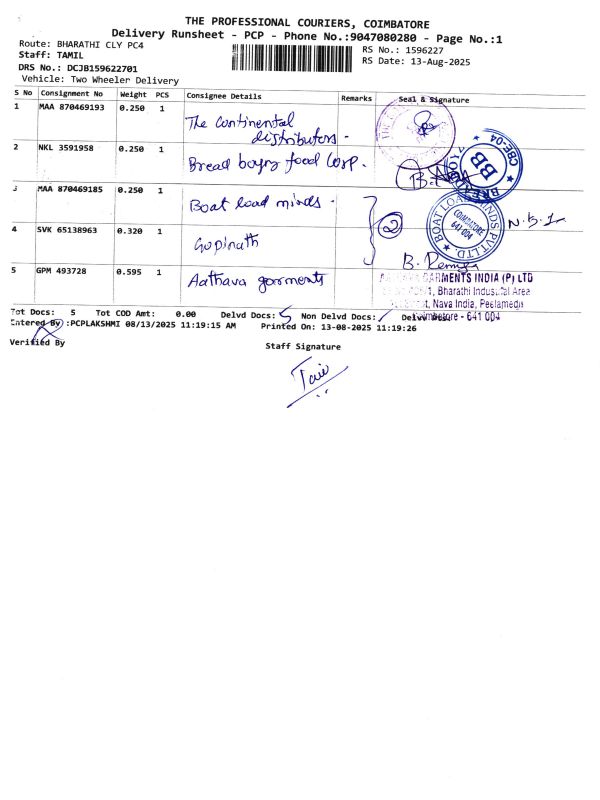 THE PROFESSIONAL COURIERS, COIMBATORE
Delivery Runsheet - PCP - Phone No.:9047080280 - Page No.:1
Route: BHARATHI CLY PC4
RS No.: 1596227
Staff: TAMIL
RS Date: 13-Aug-2025
DRS No.: DCJB159622701
Vehicle: Two Wheeler Delivery
S No Consignment No Weight PCS Consignee Details Remarks Seal & Signature
1 MAA 870469193 0.250 1 The continental
distributors -
2 NKL 3591958 0.250 1 Bread boyz food Corp.
BB
CBE-04
3 MAA 870469185 0.250 1 Boat load minds -
BOAT LOAD MINDS PVT LTD.
COIMBATORE
641 004
N.B.1
2
4 SVK 65138963 0.320 1 Gopinath
B.
5 GPM 493728 0.595 1 Aathava garments
GARMENTS INDIA (P) LTD
Bharathi Industrial Area
Nava India, Peelamedu
Coimbatore - 641 004
Tot Docs: 5 Tot COD Amt: 0.00 Delvd Docs: 5 Non Delvd Docs:
Entered By :PCPLAKSHMI 08/13/2025 11:19:15 AM Printed On: 13-08-2025 11:19:26
Verified By
Staff Signature